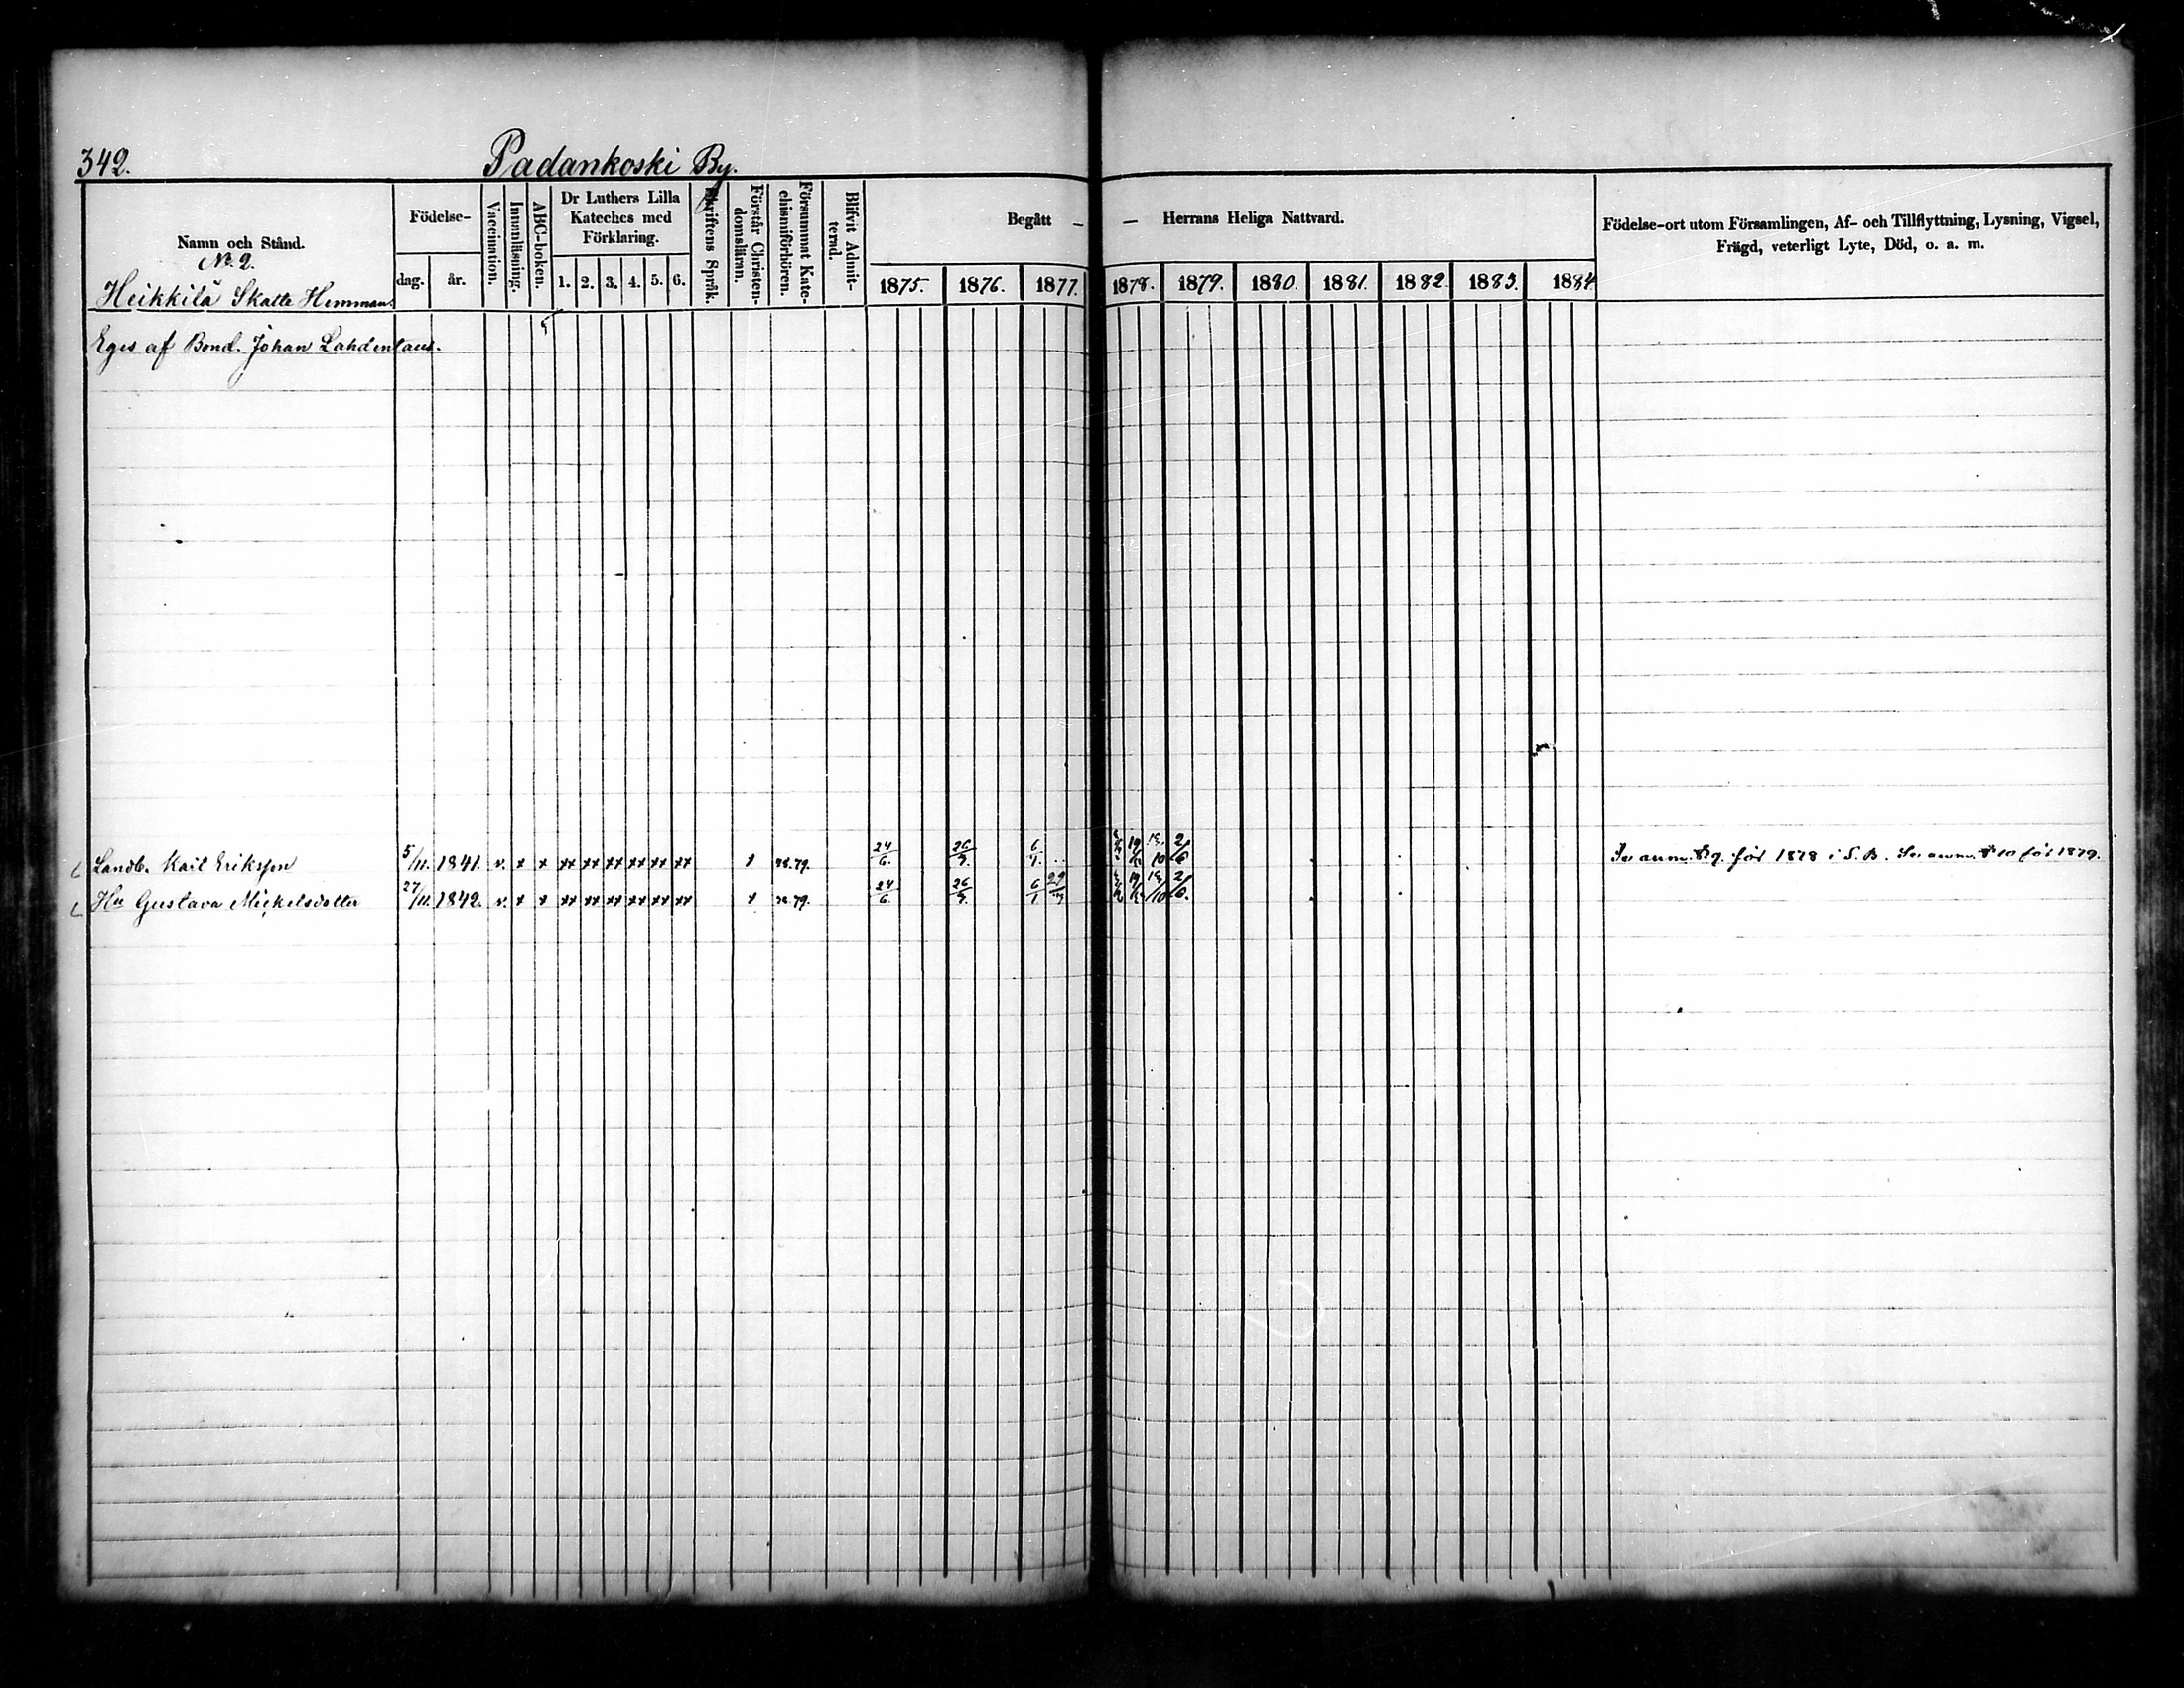 342.
Padankoski By.
Namn och Stånd.
No 2.
Heikkilä Skatte Hemman.
Födelse-
dag.
år.
Vaccination.
Innanläsning.
ABC-boken.
Dr Luthers Lilla
Kateches med
Förklaring.
1. 2. 3. 4. 5. 6.
Skriftens Språk.
Förstår Christen-
domsläran.
Försummat Kate-
chismiförhören.
Blifvit Admit-
terad.
Begått — — Herrans Heliga Nattvard.
1875. 1876. 1877. 1878. 1879. 1880. 1881. 1882. 1883. 1884
Födelse-ort utom Församlingen, Af- och Tillflyttning, Lysning, Vigsel,
Frägd, veterligt Lyte, Död, o. a. m.
Eges af Bond. Johan Lahdentaus.
Landb. Kail Eriksson 5/11. 1841. v. x x xx xx xx xx xx xx x 78.79. 24/6. 26/9. 6/1. 10 2/6 Se anm. 9. för 1878 i S. B. Se anm. 10 för 1879.
Hu Gustava Mickelsdotter 27/11. 1842. v. x x xx xx xx xx xx xx x 78.79. 24/6. 26/9. 6/1 10 2/6.